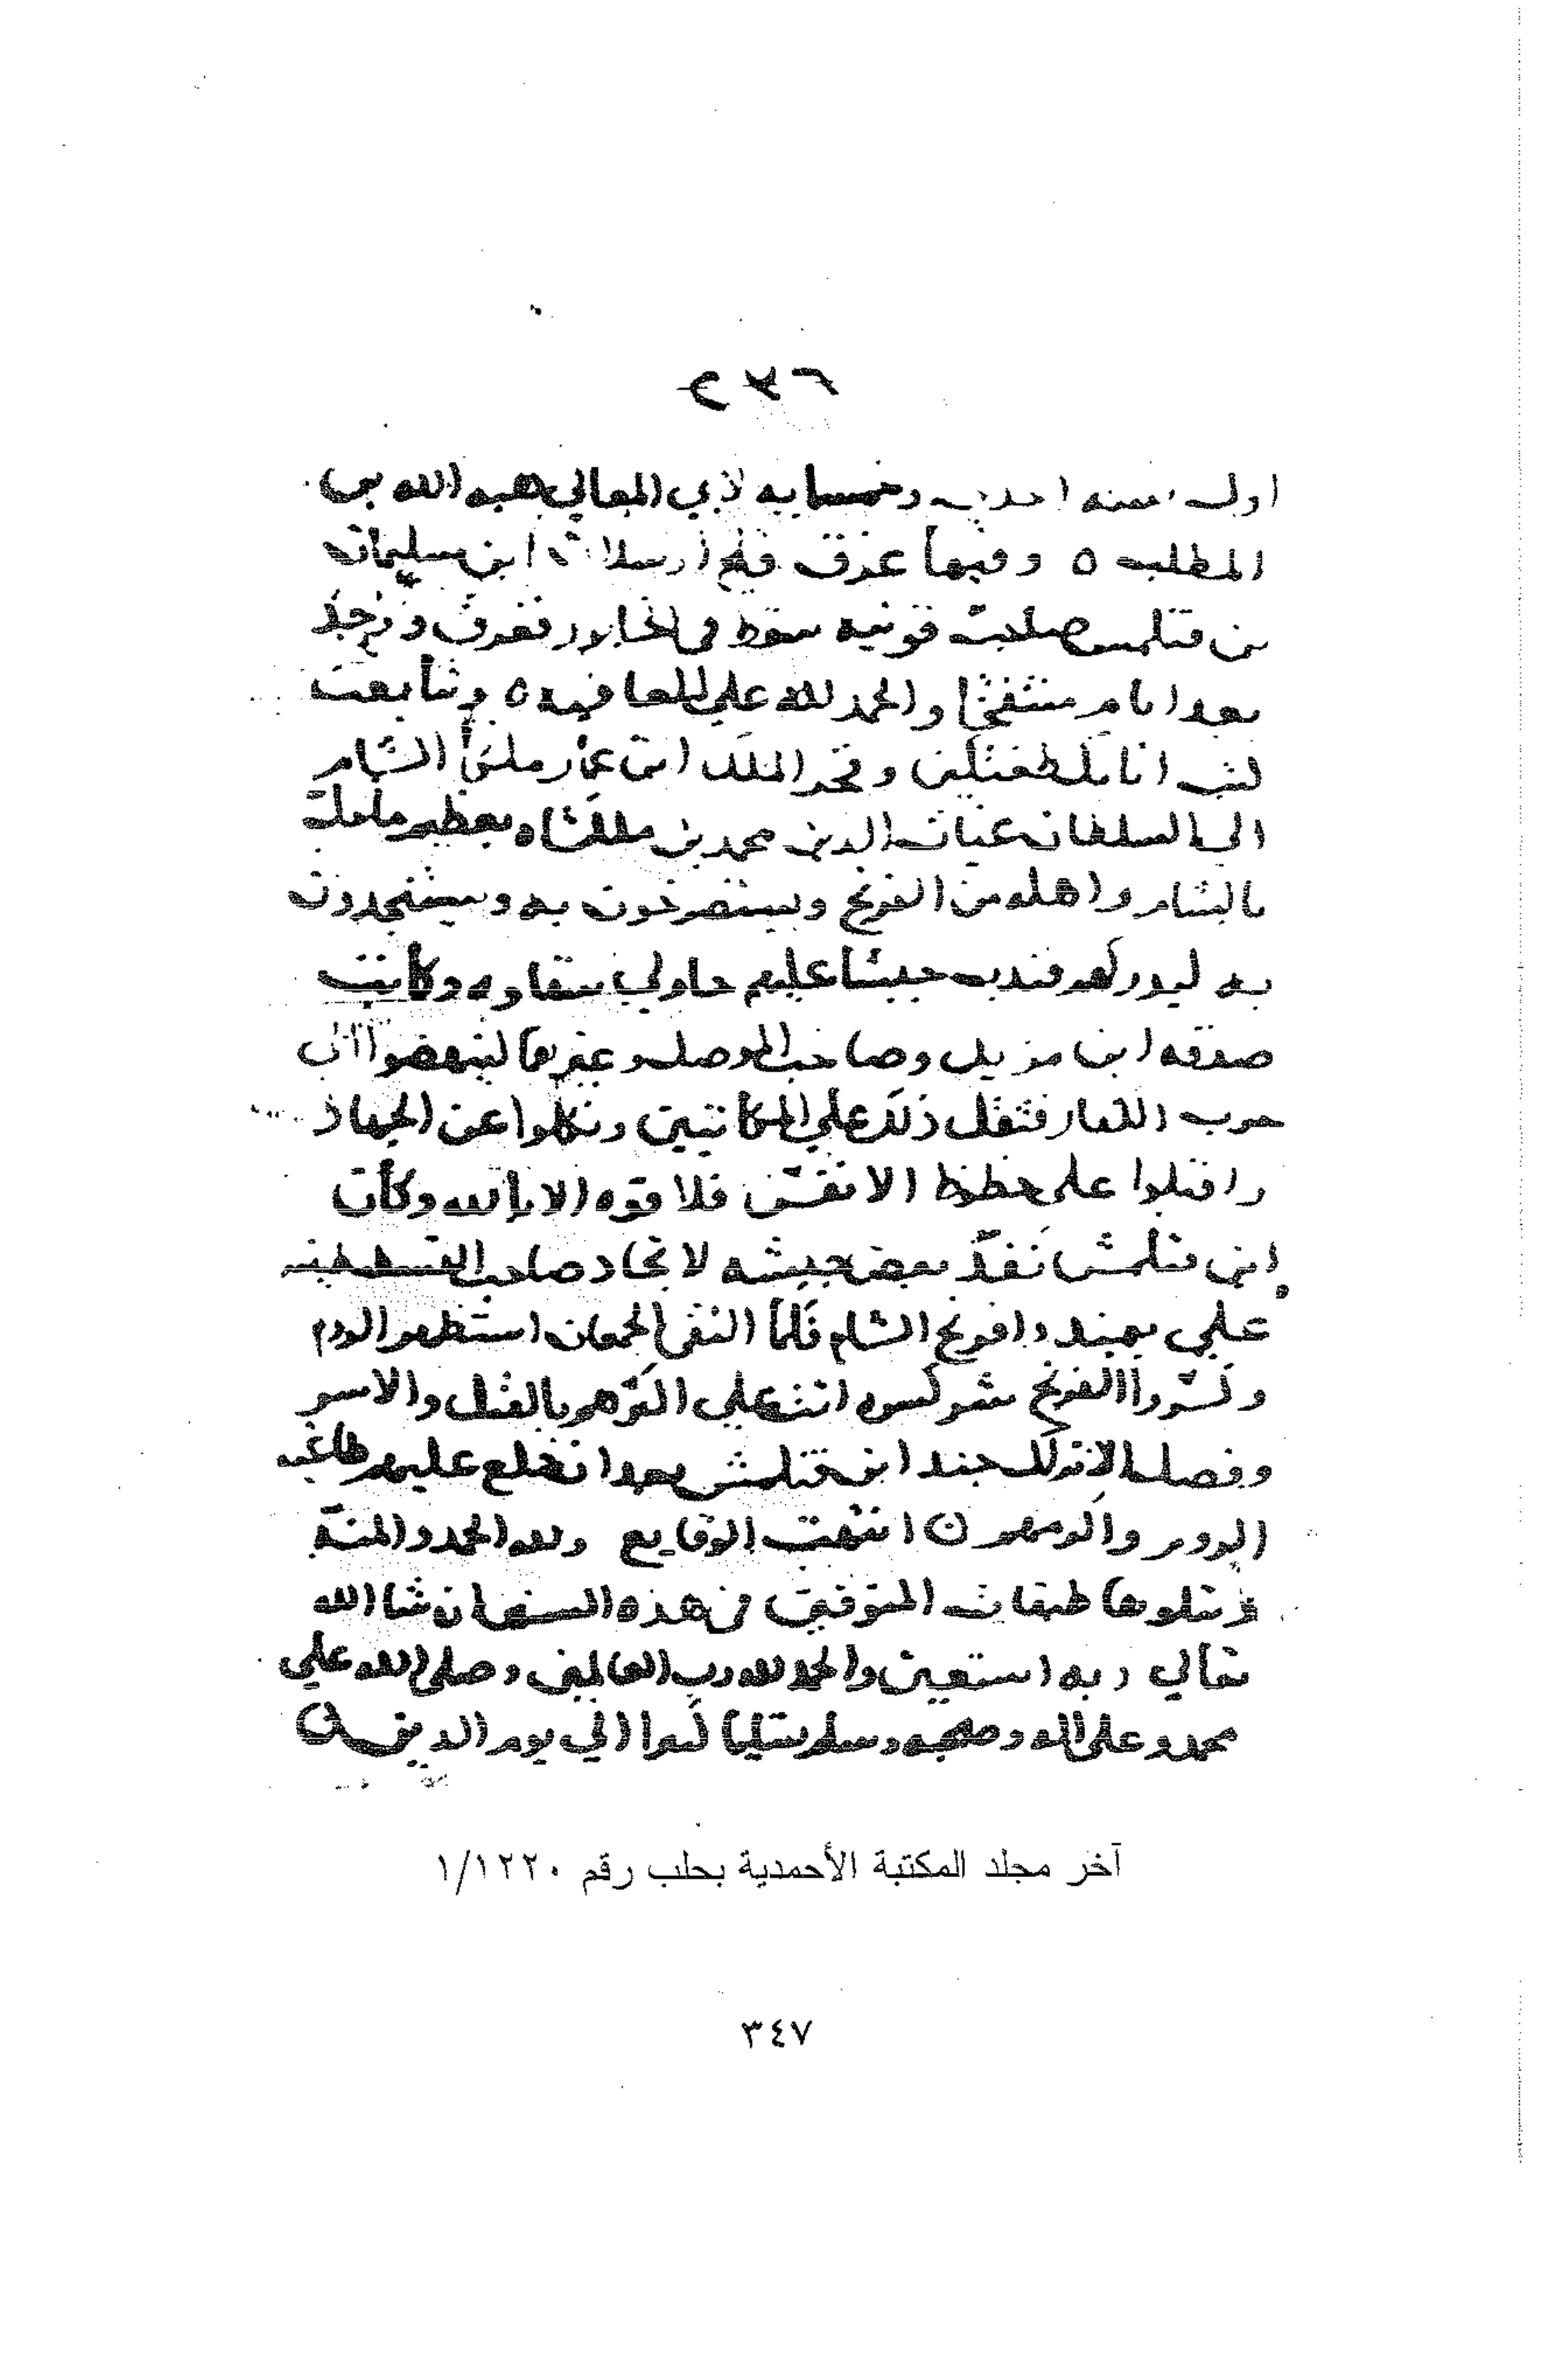 ٢٣٦
اول سنه احدى وخمسمايه لابي المعالي هبه الله بن
المطلب ٥ وفيها غرق قلج ارسلان ابن سليمان
بن قتلمس صاحب قونيه سقط في الخابور فغرق ووجد
بعد ايام منتفخا والحمد لله على العافيه ٥ وتتابعت
كتب اتابك طغتكين وفخر الملك ابن عمار ملكي الشام
الى السلطان غياث الدين محمد بن ملكشاه بعظيم ما حل
بالشام واهله من الفرنج ويستصرخون به ويستنجدون
به ليدركهم فندب جيشا عليهم جاولي سقاوه وكاتب
صدقه ابن مزيد وصاحب الموصل وغيرها لينهضوا الى
حرب الكفار فثقل ذلك على المكاتبين ونكلوا عن الجهاد
واقبلوا على حظوظ الانفس فلا قوه الا بالله وكان
ابن قتلمش نفذ بعض جيشه لانجاد صاحب القسطنطينيه
على بيمند وافرنج الشام فلما التقى الجمعان استظهر الروم
وكسروا الفرنج شر كسره اتت على اكثرهم بالقتل والاسر
وفصل الاتراك جند ابن قتلمش بعد ان خلع عليهم طاغيه
الروم واكرمهم ٥ انتهت الوقايع ولله الحمد والمنة
يتلوها طبقات المتوفين في هذه السنين ان شا الله
تعالى وبه استعين والحمد لله رب العالمين وصلى الله على
محمد وعلى اله وصحبه وسلم تسليما كثيرا الى يوم الدين
آخر مجلد المكتبة الأحمدية بحلب رقم ١/١٢٢٠
٣٤٧